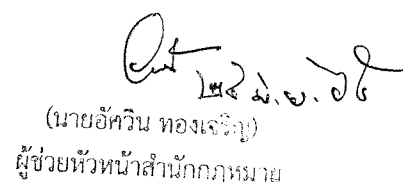 ๒๔ มิ.ย.
(นายอัศวิน ทองเจริญ)
ผู้ช่วยหัวหน้าสำนักกฎหมาย